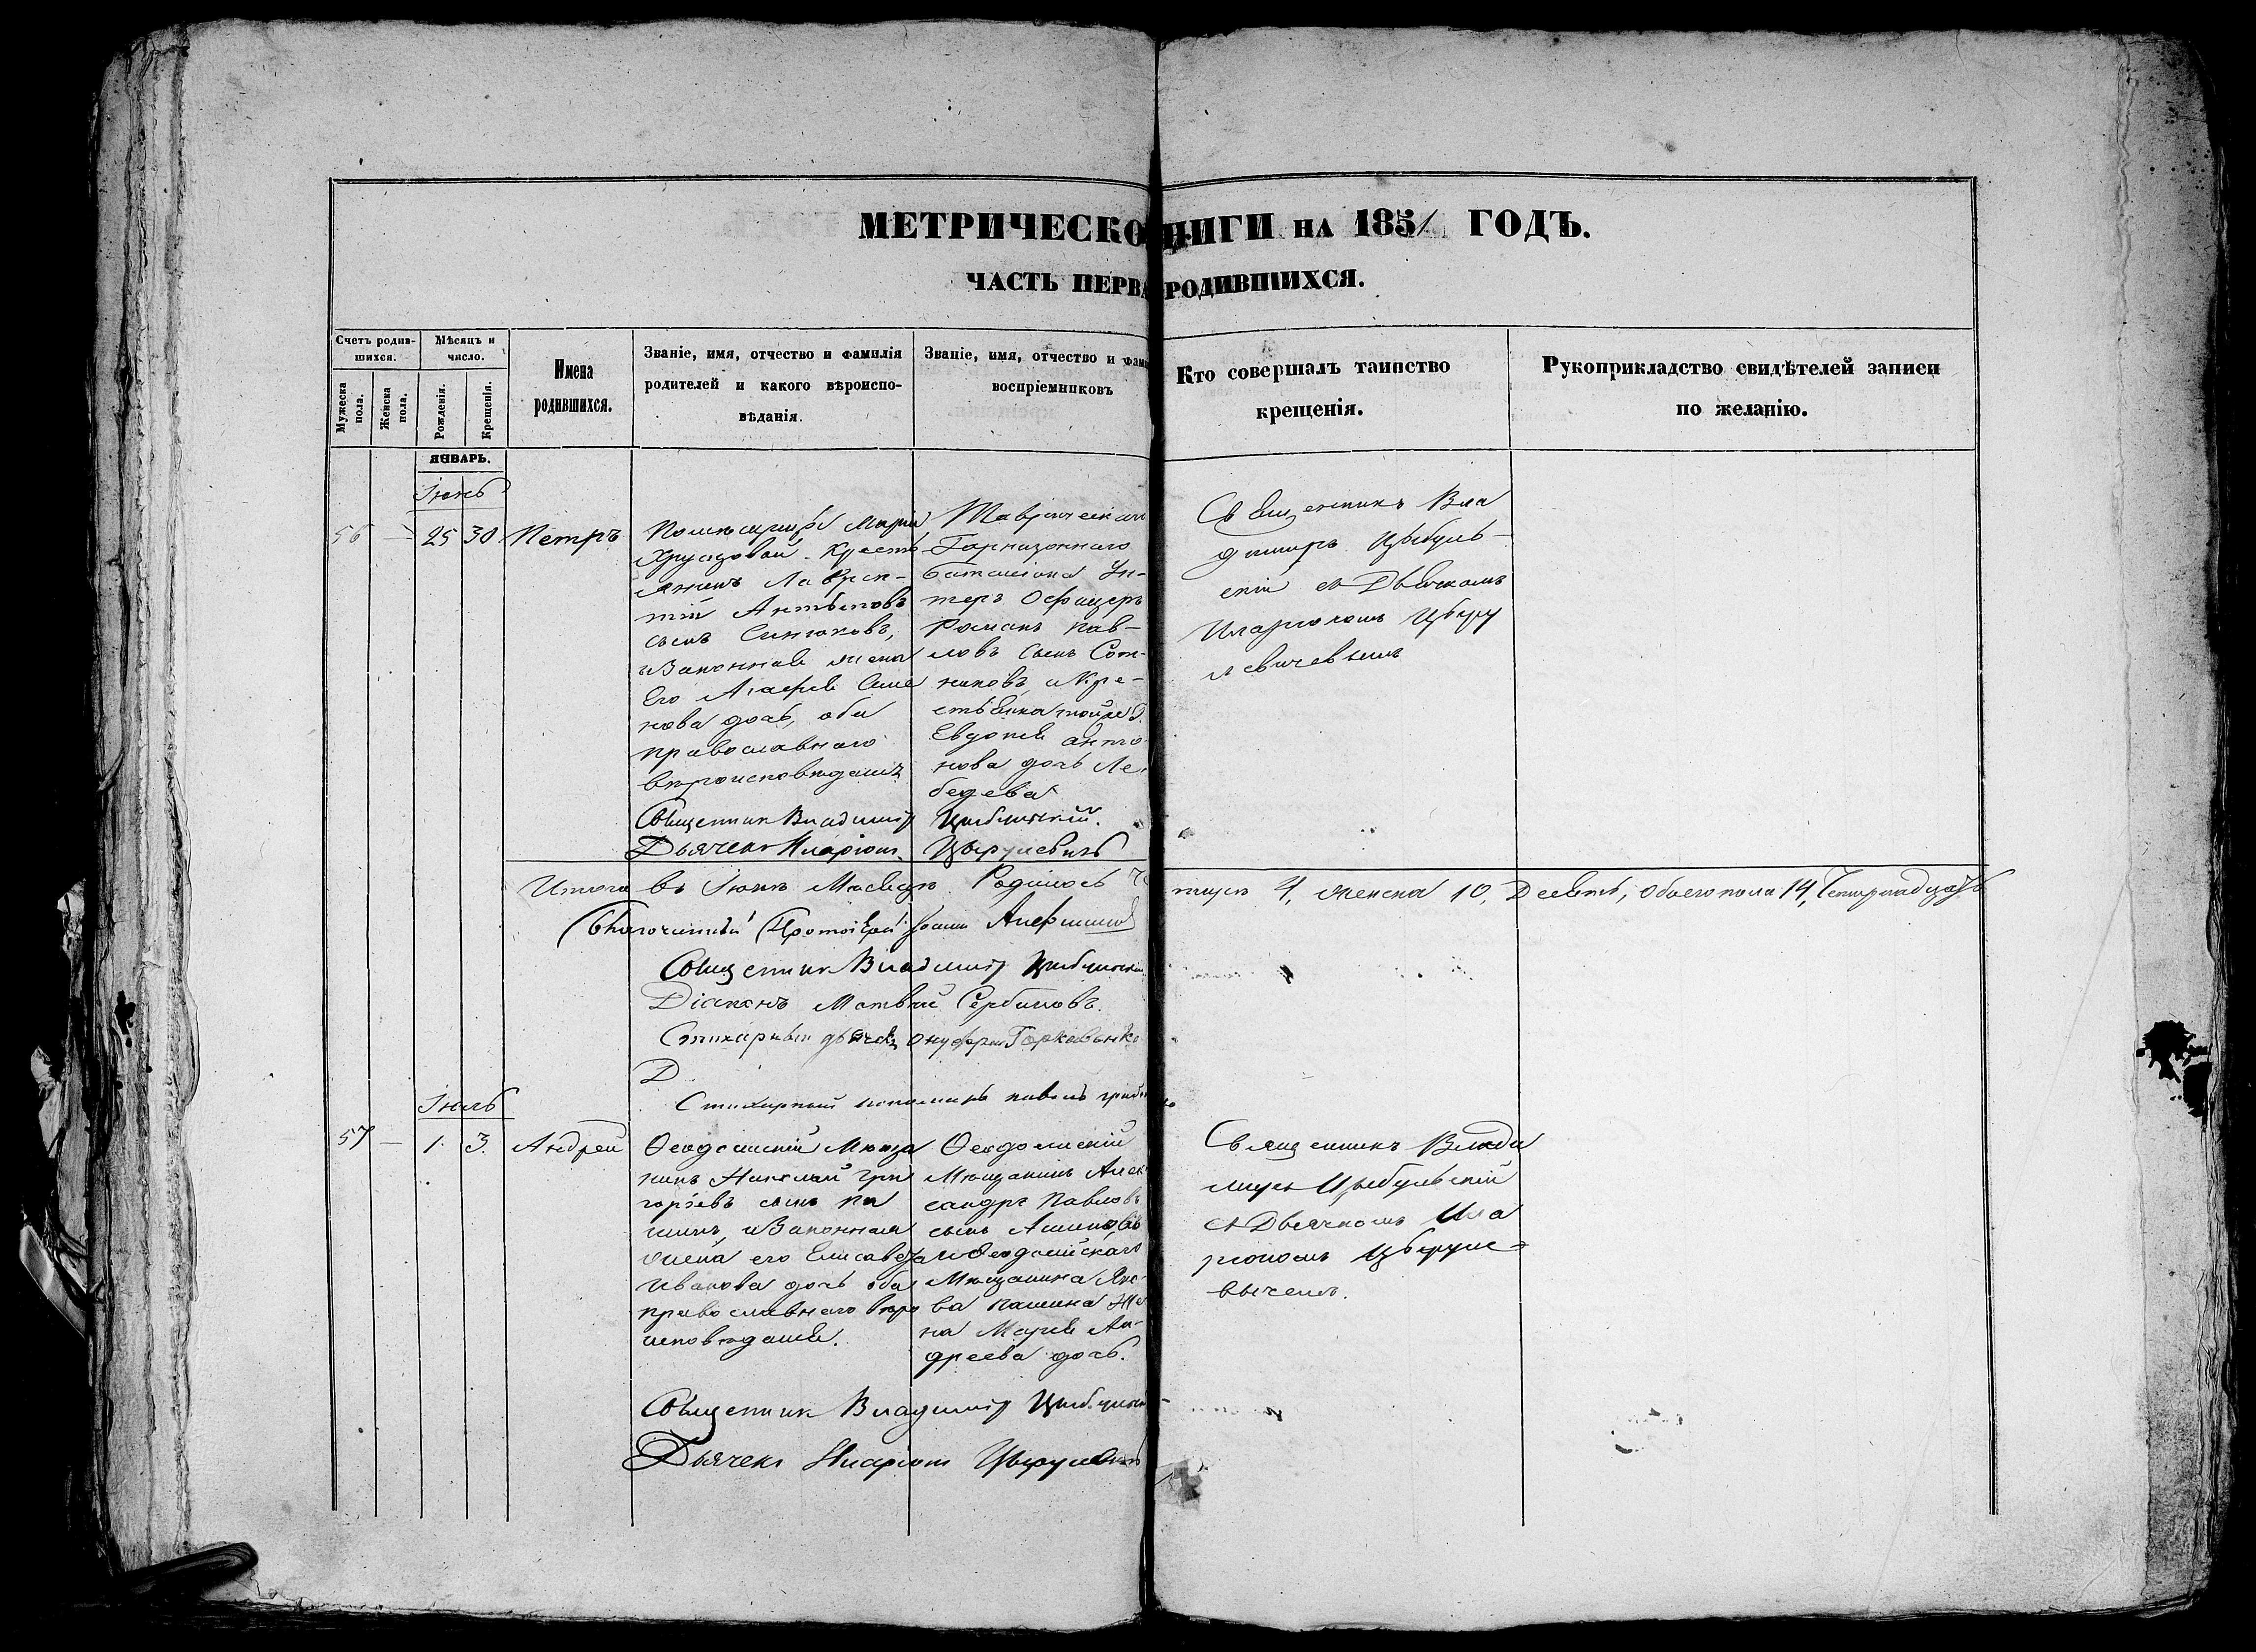 МЕТРИЧЕСКО НИГИ НА 1851 ГОДЪ.
ЧАСТЬ ПЕРВА РОДИВШИХСЯ.
Счетъ родив-
шихся.
Мужеска пола.
Женска пола.
Мѣсяцъ и
число.
Рожденія.
Крещенія.
Имена
родившихся.
Званіе, имя, отчество и фамилія
родителей и какого вѣроиспо-
вѣданія.
Званіе, имя, отчество и фами
воспріемниковъ
Кто совершалъ таинство
крещенія.
Рукоприкладство свидѣтелей записи
по желанію.
ЯНВАРЬ.
Іюнь
56 — 25 30 Петръ
Помѣщицы Маріи
Хрущовой Кресть
янинъ Лаврен-
тій Антоновъ
сынъ Синюковъ,
и законная жена
его Агафія Симо
нова дочь, оба
православнаго
вѣроисповѣданія
Таврическаго
Гарнизоннаго
баталіона Ун-
теръ Офицеръ
Романъ Пав-
ловъ сынъ Сот-
никовъ и кре-
стьянка тойже Г.
Евдокія Анто
нова дочь Ле-
бедева
Священникъ Вла
димиръ Цыбуль-
скій съ Дьячкомъ
Иларіономъ Цыру
левичевымъ
Священник Владимир Цыбульскій.
Дьячекъ Иларіонъ Цырулевичъ
Итого въ Іюнѣ Мѣсяцѣ Родилось
мужск 4, женска 10, Десять, обоего пола 14, Четырнадцать
Благочинный Протоіерей Іоаннъ
Священник Владимир Цыбульскій
Діаконъ Матвѣй Сербиновъ.
Стихарный дьячекъ Онуфрій
Д
Стихарный пономарь Павелъ
Іюль
57 — 1. 3. Андрей
Ѳеодосійскій Мѣща
нинъ Николай Гри
горьевъ сынъ Па
шинъ, и законная
жена его Елисавета
Иванова дочь оба
православнаго вѣро
исповѣданія.
Ѳеодосійскій
Мѣщанинъ Алек
сандръ Павловъ
сынъ
и Ѳеодосійскаго
Мѣщанина Яко-
ва Пашина Же
на Марія Ан-
дреева дочь.
Священникъ Влади
миръ Цыбульскій
съ Дьячкомъ Ила
ріономъ Цыруле-
вичемъ.
Священник Владимир Цыбульскій
Дьячекъ Иларіонъ Цырулевичъ